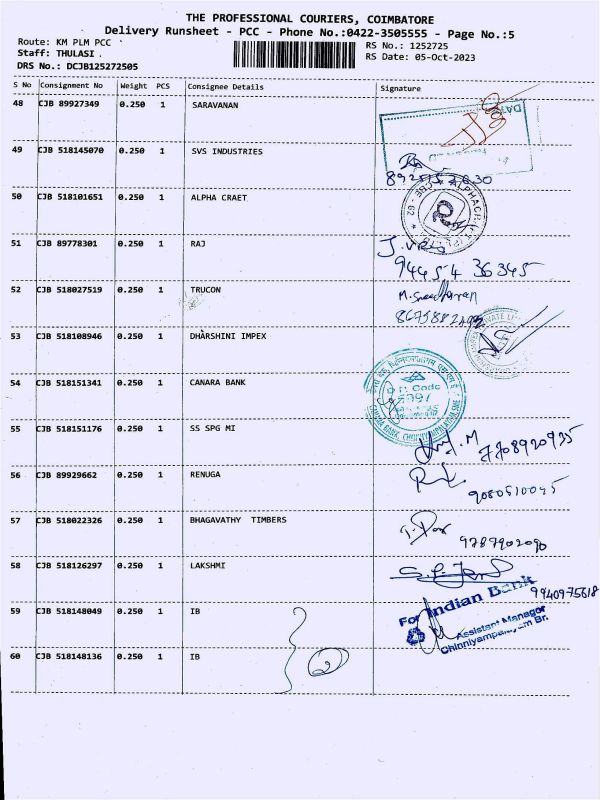 THE PROFESSIONAL COURIERS, COIMBATORE
Delivery Runsheet - PCC - Phone No.:0422-3505555 - Page No.:5
Route: KM PLM PCC
Staff: THULASI .
DRS No.: DCJB125272505
RS No.: 1252725
RS Date: 05-Oct-2023
S No Consignment No Weight PCS Consignee Details Signature
48 CJB 89927349 0.250 1 SARAVANAN
DATE
49 CJB 518145070 0.250 1 SVS INDUSTRIES
50 CJB 518101651 0.250 1 ALPHA CRAET
51 CJB 89778301 0.250 1 RAJ
94454 36345
52 CJB 518027519 0.250 1 TRUCON
53 CJB 518108946 0.250 1 DHARSHINI IMPEX
54 CJB 518151341 0.250 1 CANARA BANK
Code
CANARA BANK,
55 CJB 518151176 0.250 1 SS SPG MI
7708920935
56 CJB 89929662 0.250 1 RENUGA
9080510045
57 CJB 518022326 0.250 1 BHAGAVATHY TIMBERS
9787902090
58 CJB 518126297 0.250 1 LAKSHMI
9940975618
59 CJB 518148049 0.250 1 IB
For Indian Bank
Assistant Manager
Chinniyampalayam Br.
60 CJB 518148136 0.250 1 IB
2